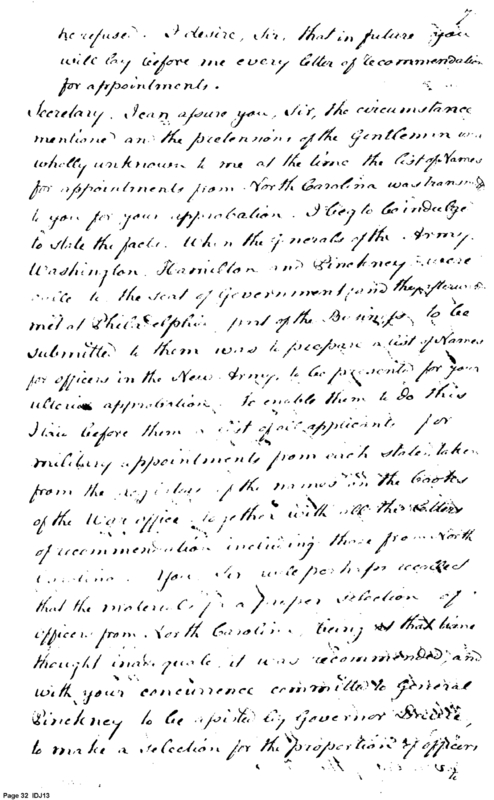 7
be refused. I desire, Sir, that in future you
will lay before me every letter of recommendation
for appointments.
Secretary. I can assure you, Sir, the circumstance
mentioned and the pretensions of the Gentlemen was
wholly unknown to me at the time the list of Names
for appointments from North Carolina was
to you for your approbation. I beg to be indulged
to state the facts. When the Generals of the Army,
Washington, Hamilton and Pinckney were
to the seat of Government, and
met at Philadelphia, part of the Business to be
submitted to them was to prepare a list of Names
for officers in the New Army, to be presented for your
ulterior approbation. To enable them to do this
I laid before them a list of all applicants for
military appointments from each state, taken
from the registers of the names in the books
of the War office together with all the Letters
of recommendation including those from North
Carolina. You Sir will perhaps recollect
that the materials for a proper selection of
officers from North Carolina, being at that time
thought inadequate, it was recommended, and
with your concurrence committed to General
Pinckney to be assisted by Governor Davie,
to make a selection for the proportion of officers
Page 32 IDJ13